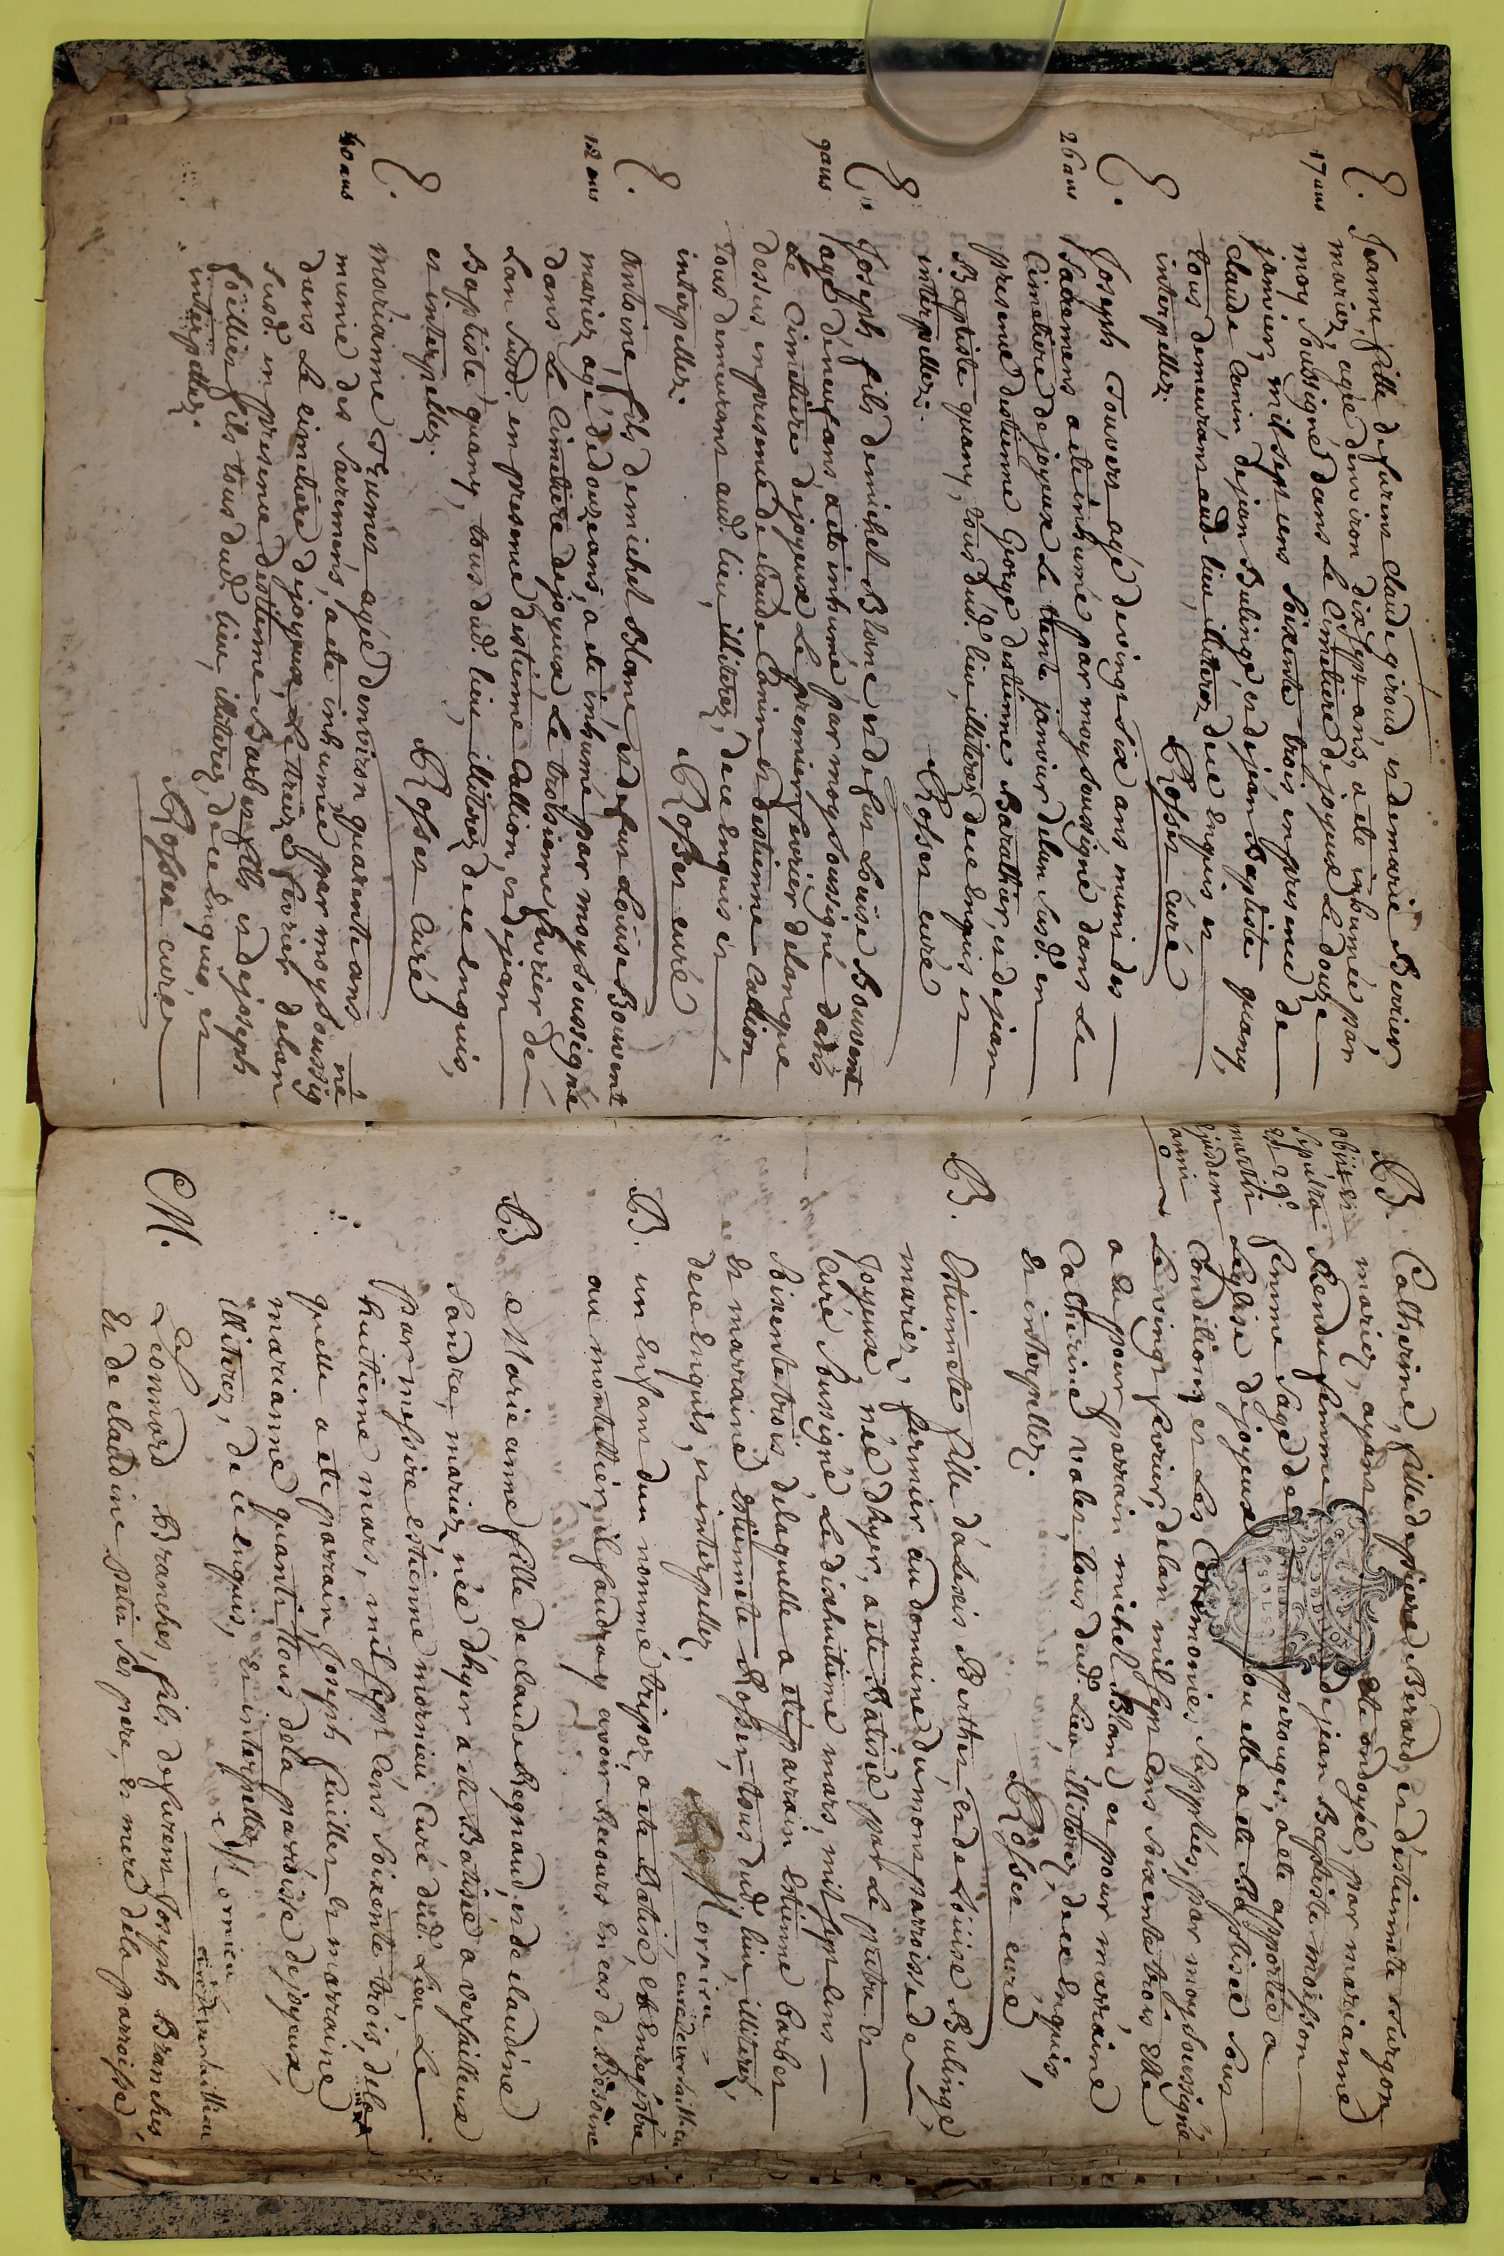 E. Jeanne fille defunts Claude giroud, et demarie Berrier
17 ans mariez, agée denviron dixsept ans, a ete inhumée par
moy soussigné dans Le Cimetiere de joyeux Le douze
janvier, mil sept cens soixente trois, en presence de
claude Canin, de jean Bulinge, et de jean Baptiste quany,
tous demeurans aud. lieu, illiterez, de ce enquis et
interpellez.
Rosser curé
E. Joseph Touvers agé devingt six ans muni des
26 ans sacremens a ete inhumé par moy soussigné dans Le
Cimetiere de joyeux Le trente janvier delan susd. en
presence destienne George destienne Barathier, et de jean
Baptiste quany, tous dud. lieu, illiterez, de ce enquis et
interpellez.
Rosser curé
E. Joseph fils demichel Blanc et defue Loüise Bouvent
9 ans agé de neuf ans, a ete inhumé par moy soussigné dans
Le Cimetiere de joyeux Le premier fevrier delan que
dessus, en presence de claude Canin et destienne Callion
tous demeurans aud. lieu, illiterez, de ce enquis et
interpellez.
Rosser curé
E. Antoine fils de michel Blanc et defue Loüise Bouvent
12 ans mariez agé de douze ans, a ete inhumé par moy soussigné
dans Le Cimetiere de joyeux Le troisieme fevrier de
Lan susd. en presence destienne Callion, et de jean
Baptiste quany, tous dud. lieu illiterez de ce enquis,
et interpellez.
Rosser Curé
E. mariamne agée denviron quarente ans
40 ans munie des sacremens, a ete inhumée par moy soussigné
dans Le cimetiere de joyeux, Le treize fevrier delan
susd. en presence destienne Barbet fils et de joseph
föillier fils tous dud. lieu, illiterez, de ce enquis, et
interpellez.
Rosser curé
B. Catherine, fille de pierre Berard, et destiennete Turgon
mariez, ayant ete ondoyée, par marianne
obiit et Rendu femme de jean Baptiste moisson
sepulta femme sage de perouges, a ete apportée a
est 29a Leglise de joyeux ou elle a ete Baptisée sous
martii Condition, et Les Ceremonies suppléés, par moy soussigné
ejusdem Le vingt fevrier, delan mil sept cens soixente trois Elle
anni a eu pour parrain michel Blanc et pour marraine
Catherine valet, tous dud. Lieu, illiterez, de ce enquis,
et interpellez.
Rosser curé
B. Estiennete fille dalexis Berthet, et de Loüise Bulinge
mariez, fermier au domaine du mont parroisse de
joyeux, née dhyer, a ete Batisée par Le prêtre et
Curé soussigné, Le dixhuitieme mars, mil sept cens
soixente trois, delaquelle a ete parrain Estienne Barbet
et marraine Estiennete Rosset, tous dud. lieu, illiterez,
de ce enquis, et interpellez.
Mornieu
curé de versailleu
B. un Enfant dun nommé tripoz a ete Batisé, et Enregistre
au montellier, il faudroy avoir Recours En cas de Besoin
B Marie anne fille de claude Regnaud, et de claudine
sandre, mariez née d'hyer a ete Batisée a versailleux
par messire estienne mornieu Curé dud. Lieu Le
huitieme mars, mil sept Cens soixente trois, dela
quelle a ete parrain, Joseph fuillet et marraine
marianne quanti, tous dela parroisse de joyeux,
illiterez, de ce enquis, et interpellez.
Mornieu
curé de versailleu
M. Leonnard Branches, fils defunts Joseph Branches
Et de claudine petit ses pere, et mere dela parroisse,